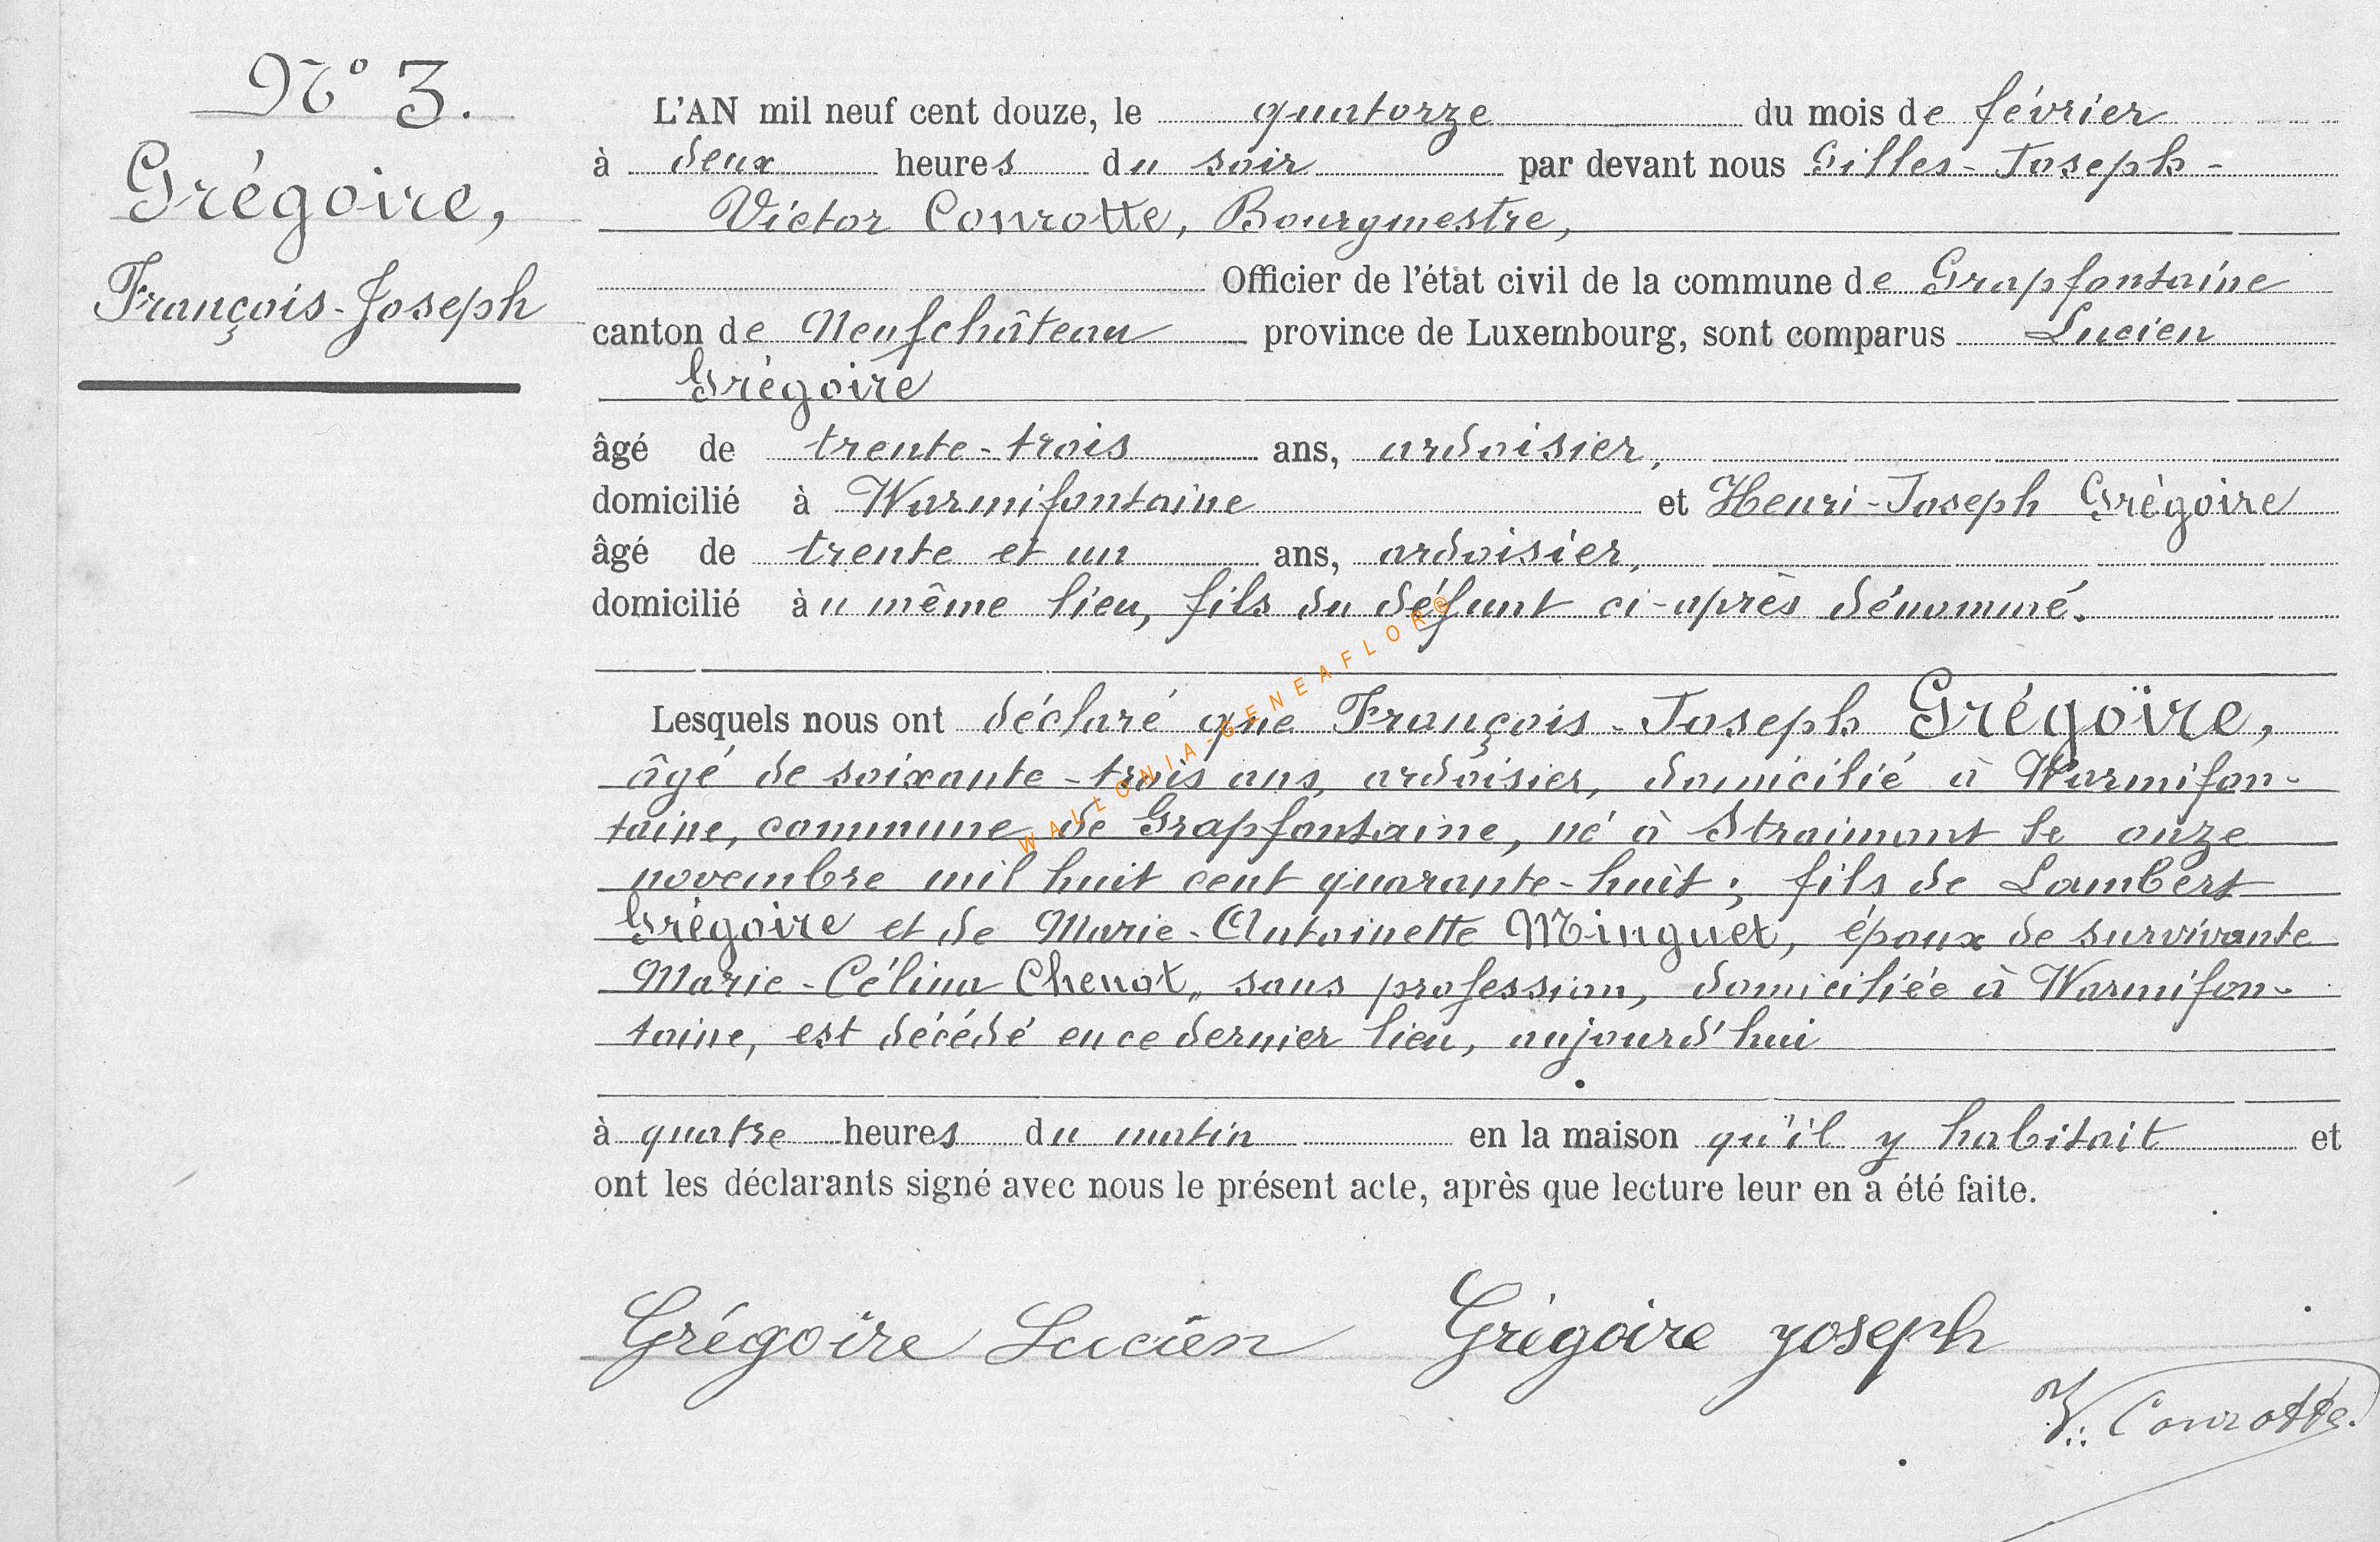 N° 3.
Grégoire,
François-Joseph
L'AN mil neuf cent douze, le quatorze du mois de février
à deux heures du soir par devant nous Gilles-Joseph-
Victor Conrotte, Bourgmestre,
Officier de l'état civil de la commune de Grapfontaine
canton de Neufchâteau province de Luxembourg, sont comparus Lucien
Grégoire
âgé de trente-trois ans, ardoisier,
domicilié à Warmifontaine et Henri-Joseph Grégoire
âgé de trente et un ans, ardoisier,
domicilié au même lieu, fils du défunt ci-après dénommé.
Lesquels nous ont déclaré que François-Joseph Grégoire,
âgé de soixante-trois ans, ardoisier, domicilié à Warmifon-
taine, commune de Grapfontaine, né à Straimont le onze
novembre mil huit cent quarante-huit; fils de Lambert
Grégoire et de Marie-Antoinette Minguet, époux de survivante
Marie-Célina Chenot, sans profession, domiciliée à Warmifon-
taine, est décédé en ce dernier lieu, aujourd'hui
à quatre heures du matin en la maison qu'il y habitait et
ont les déclarants signé avec nous le présent acte, après que lecture leur en a été faite.
Grégoire Lucien Grégoire Joseph
V. Conrotte.
WALLONIA-GENEAFLOR®